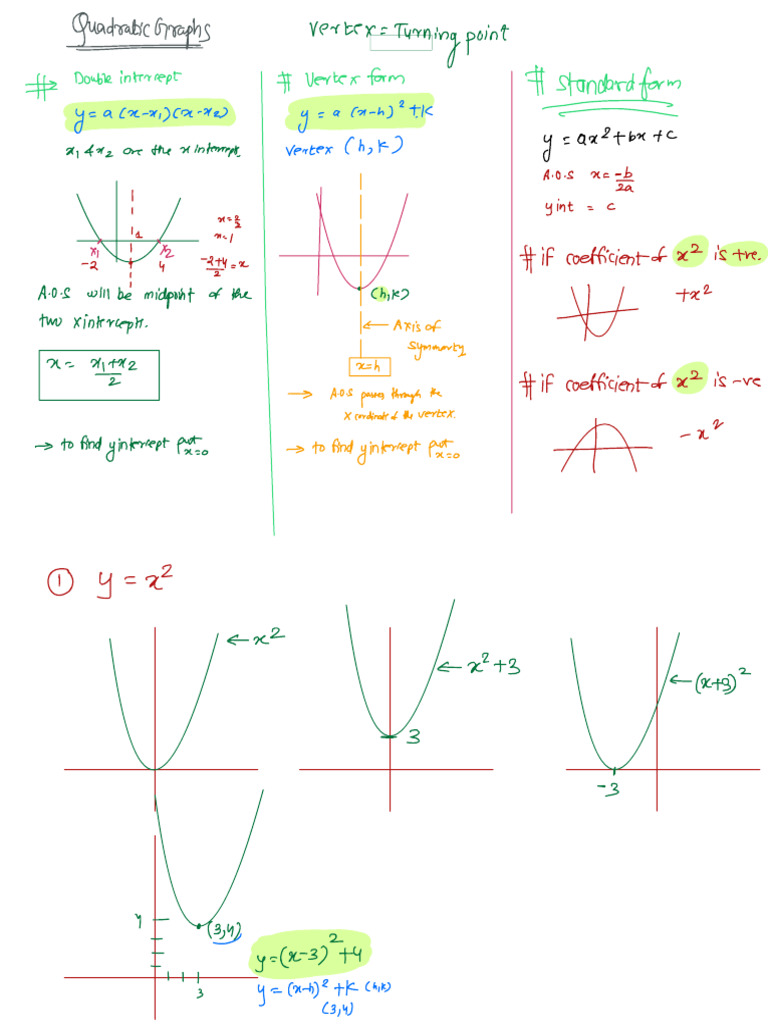 Quadratic Graphs
Vertex = Turning point
# Double intercept
y = a (x-x₁)(x-x₂)
x₁ & x₂ are the x intercept.
1
x₁
x₂
-2
4
x = 2/2
x = 1
(-2+4)/2 = x
A.O.S will be midpoint of the
two x intercepts.
x = (x₁+x₂)/2
→ to find y intercept put x=0
# Vertex form
y = a (x-h)² + k
vertex (h, k)
(h,k)
← Axis of
symmetry
x=h
→ A.O.S passes through the
x cordinate of the vertex.
→ to find y intercept put x=0
# Standard form
y = ax² + bx + c
A.O.S x = -b/2a
y int = c
# if coefficient of x² is +ve.
+x²
# if coefficient of x² is -ve
-x²
① y = x²
← x²
← x² + 3
3
← (x+3)²
-3
4
(3,4)
3
y = (x-3)² + 4
y = (x-h)² + k (h,k)
(3,4)